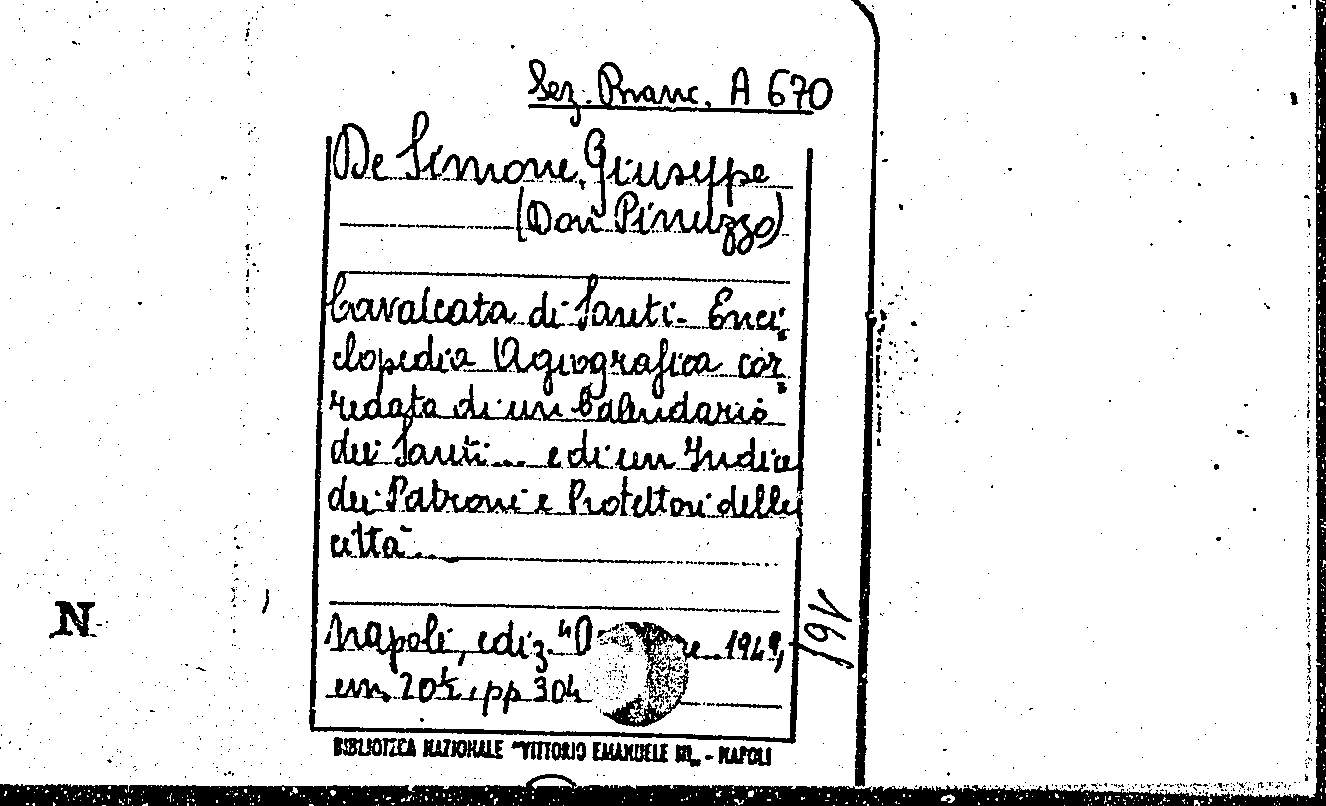 Sez. Branc. A 670
De Simone, Giuseppe
(Don Pinuzzo)
Cavalcata di Santi - Enci-
clopedia Agiografica cor-
redata di un Calendario
dei Santi... e di un Indice
dei Patroni e Protettori delle
città...
Napoli, ediz. 1949,
cm. 20½, pp 304
BIBLIOTECA NAZIONALE "VITTORIO EMANUELE III" - NAPOLI
N